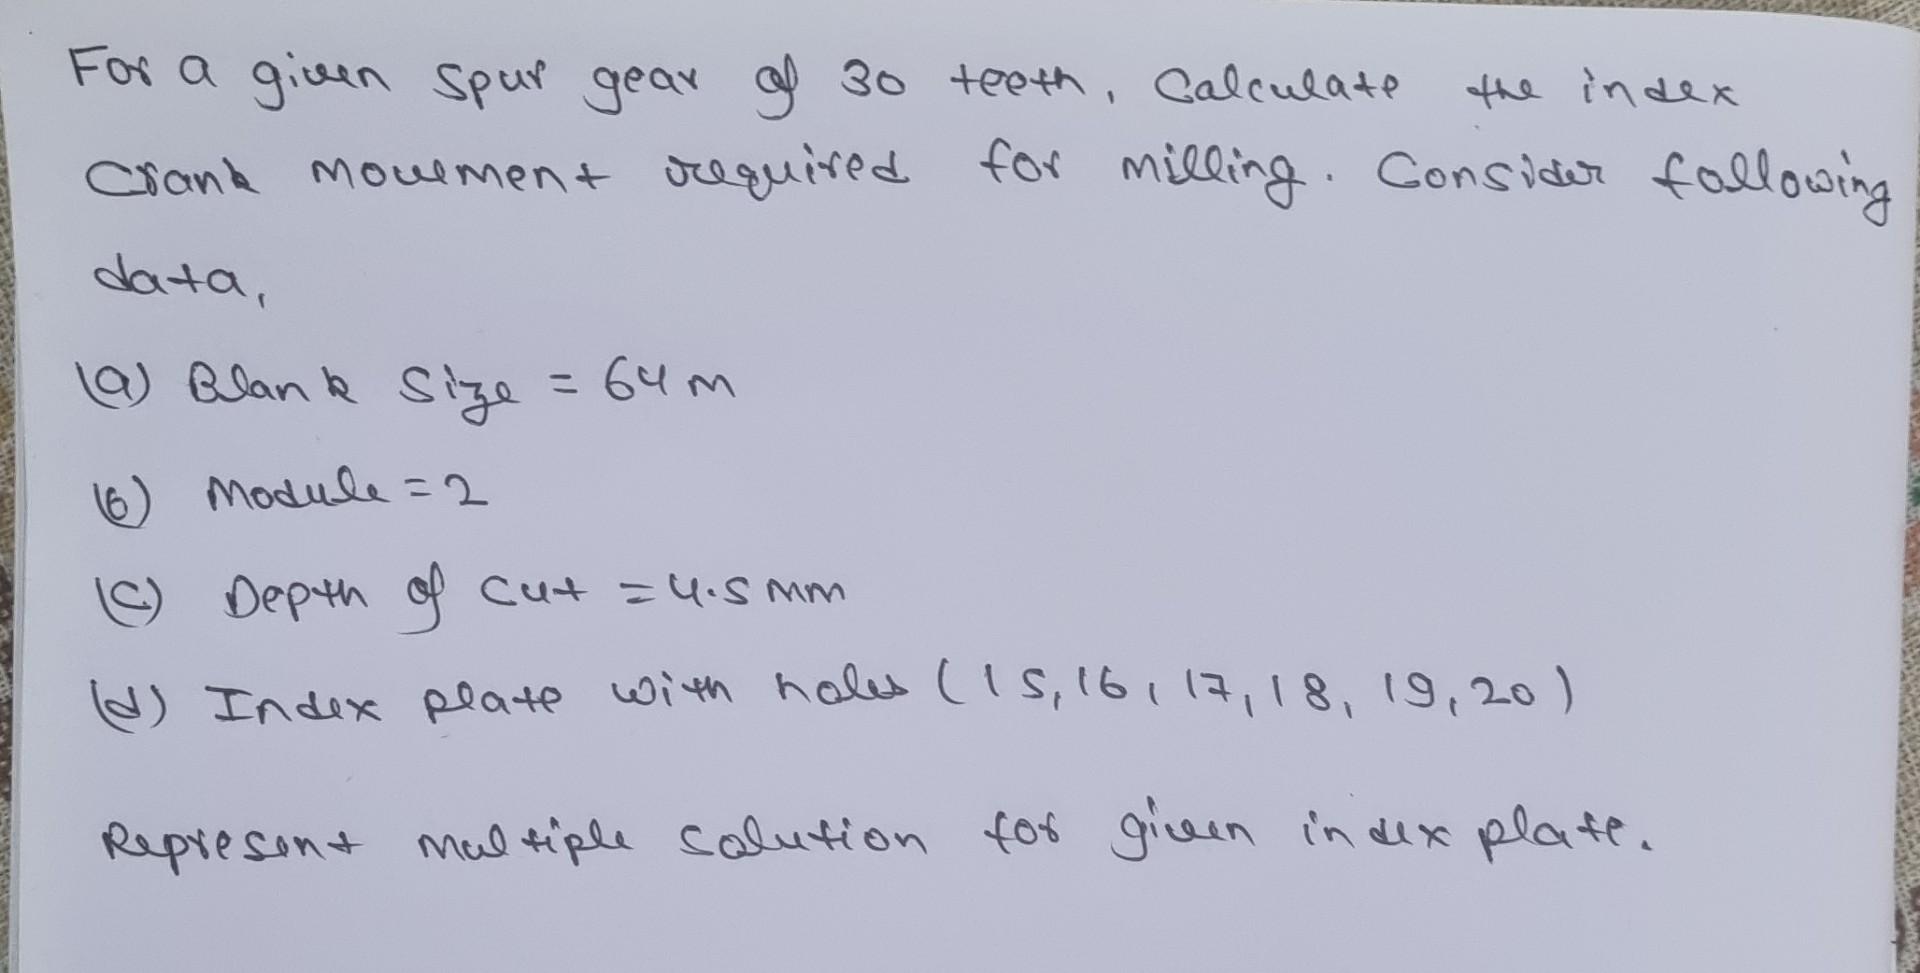 For a given spur gear of 30 teeth, Calculate the index
Crank movement required for milling. Consider following
data,
(a) Blank size = 64 m
(b) Module = 2
(c) Depth of cut = 4.5 mm
(d) Index plate with holes (15, 16, 17, 18, 19, 20)
Represent multiple solution for given index plate.